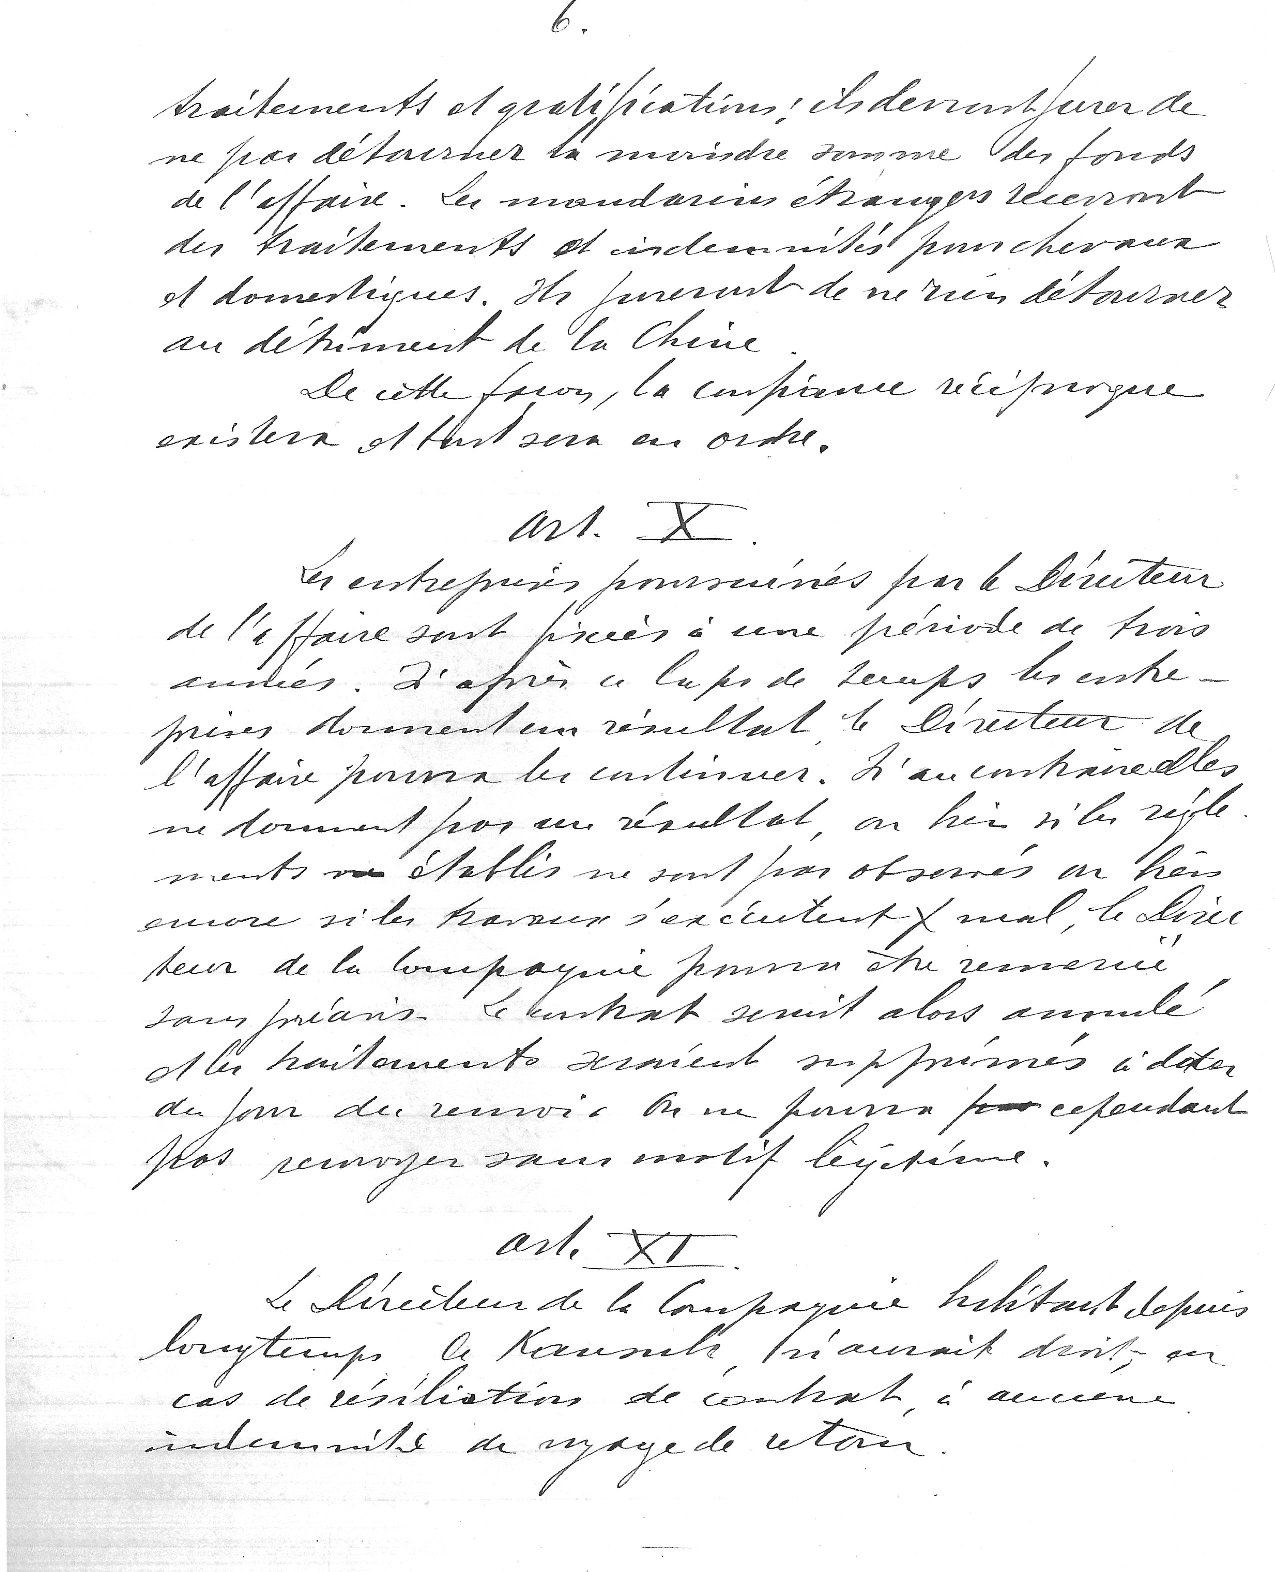 6.
traitements et gratifications; ils devront jurer de
ne pas détourner la moindre somme des fonds
de l'affaire. Les mandarins étrangers recevront
des traitements et indemnités pour chevaux
et domestiques. Ils jureront de ne rien détourner
au détriment de la Chine.
De cette façon, la confiance réciproque
existera et tout sera en ordre.
Art. X.
Les entreprises poursuivies par le Directeur
de l'affaire sont fixées à une période de trois
années. Si après ce laps de temps les entre-
prises donnent un résultat, le Directeur de
l'affaire pourra les continuer. Si au contraire elles
ne donnent pas un résultat, ou bien si les règle-
ments établis ne sont pas observés ou bien
encore si les travaux s'exécutent mal, le Direc
teur de la Compagnie pourra être remercié
sans préavis. Le contrat serait alors annulé
et les traitements seraient supprimés à dater
du jour du renvoi. On ne pourra pas cependant
pas renvoyer sans motif légitime.
Art. XI.
Le Directeur de la Compagnie habitant depuis
longtemps le Kansuh, n'aurait droit, en
cas de résiliation de contrat, à aucune
indemnité de voyage de retour.